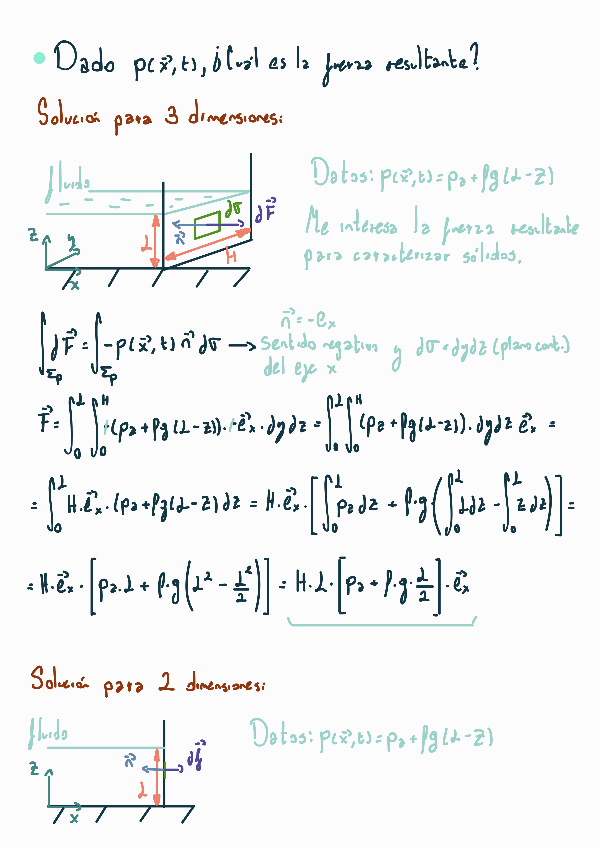 • Dado p(x⃗,t), ¿Cuál es la fuerza resultante?
Solución para 3 dimensiones:
fluido
dσ
dF⃗
n⃗
L
H
z
y
x⃗
Datos: p(x⃗,t)=pa+ρg(L-z)
Me interesa la fuerza resultante
para caracterizar sólidos.
∫_Σp dF⃗ = ∫_Σp -p(x⃗,t) n⃗ dσ →
n⃗=-eₓ
Sentido negativo
del eje x
y dσ=dydz (plano cont.)
F⃗ = ∫₀ᴸ ∫₀ᴴ +(pa+ρg(L-z))·+e⃗ₓ·dydz = ∫₀ᴸ ∫₀ᴴ (pa+ρg(L-z))·dydz e⃗ₓ =
= ∫₀ᴸ H·e⃗ₓ·(pa+ρg(L-z) dz = H·e⃗ₓ·[∫₀ᴸ pa dz + ρ·g(∫₀ᴸ Ldz - ∫₀ᴸ z dz)] =
= H·e⃗ₓ·[pa·L + ρ·g(L² - L²/2)] = H·L·[pa + ρ·g·L/2]·e⃗ₓ
Solución para 2 dimensiones:
fluido
n⃗
df⃗
L
z
x⃗
Datos: p(x⃗,t)=pa+ρg(L-z)